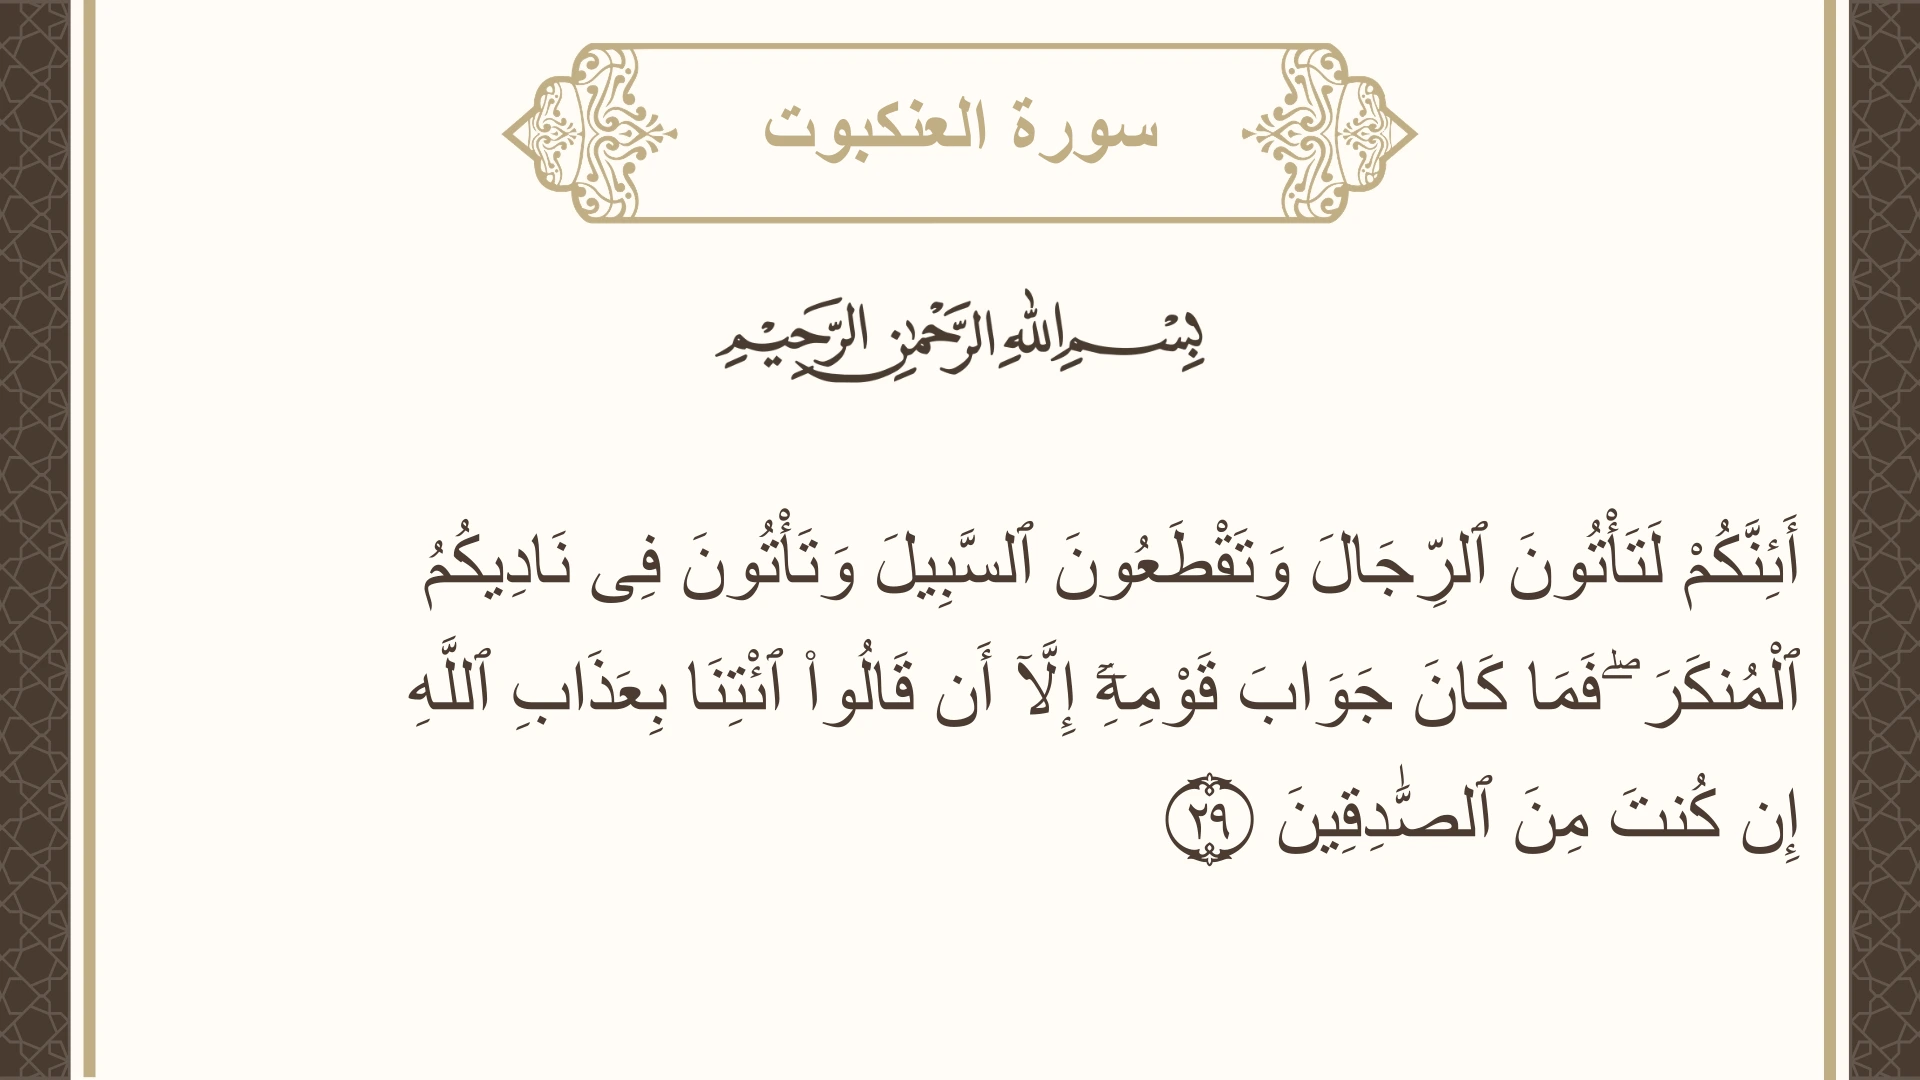 سورة العنكبوت
بِسْمِ اللهِ الرَّحْمٰنِ الرَّحِيْمِ
أَئِنَّكُمْ لَتَأْتُونَ ٱلرِّجَالَ وَتَقْطَعُونَ ٱلسَّبِيلَ وَتَأْتُونَ فِى نَادِيكُمُ
ٱلْمُنكَرَ ۖ فَمَا كَانَ جَوَابَ قَوْمِهِۦٓ إِلَّآ أَن قَالُوا۟ ٱئْتِنَا بِعَذَابِ ٱللَّهِ
إِن كُنتَ مِنَ ٱلصَّٰدِقِينَ ٢٩